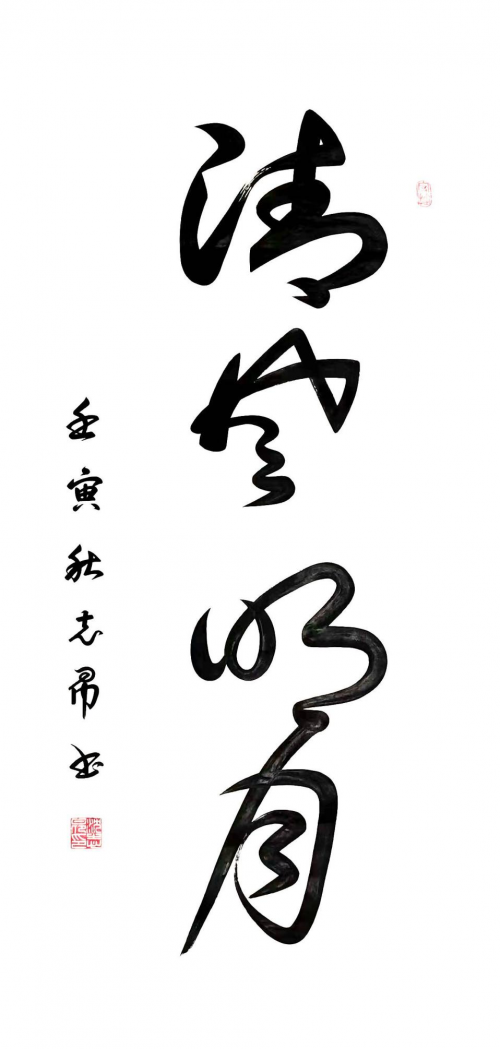 清风明月
壬寅秋志昂书